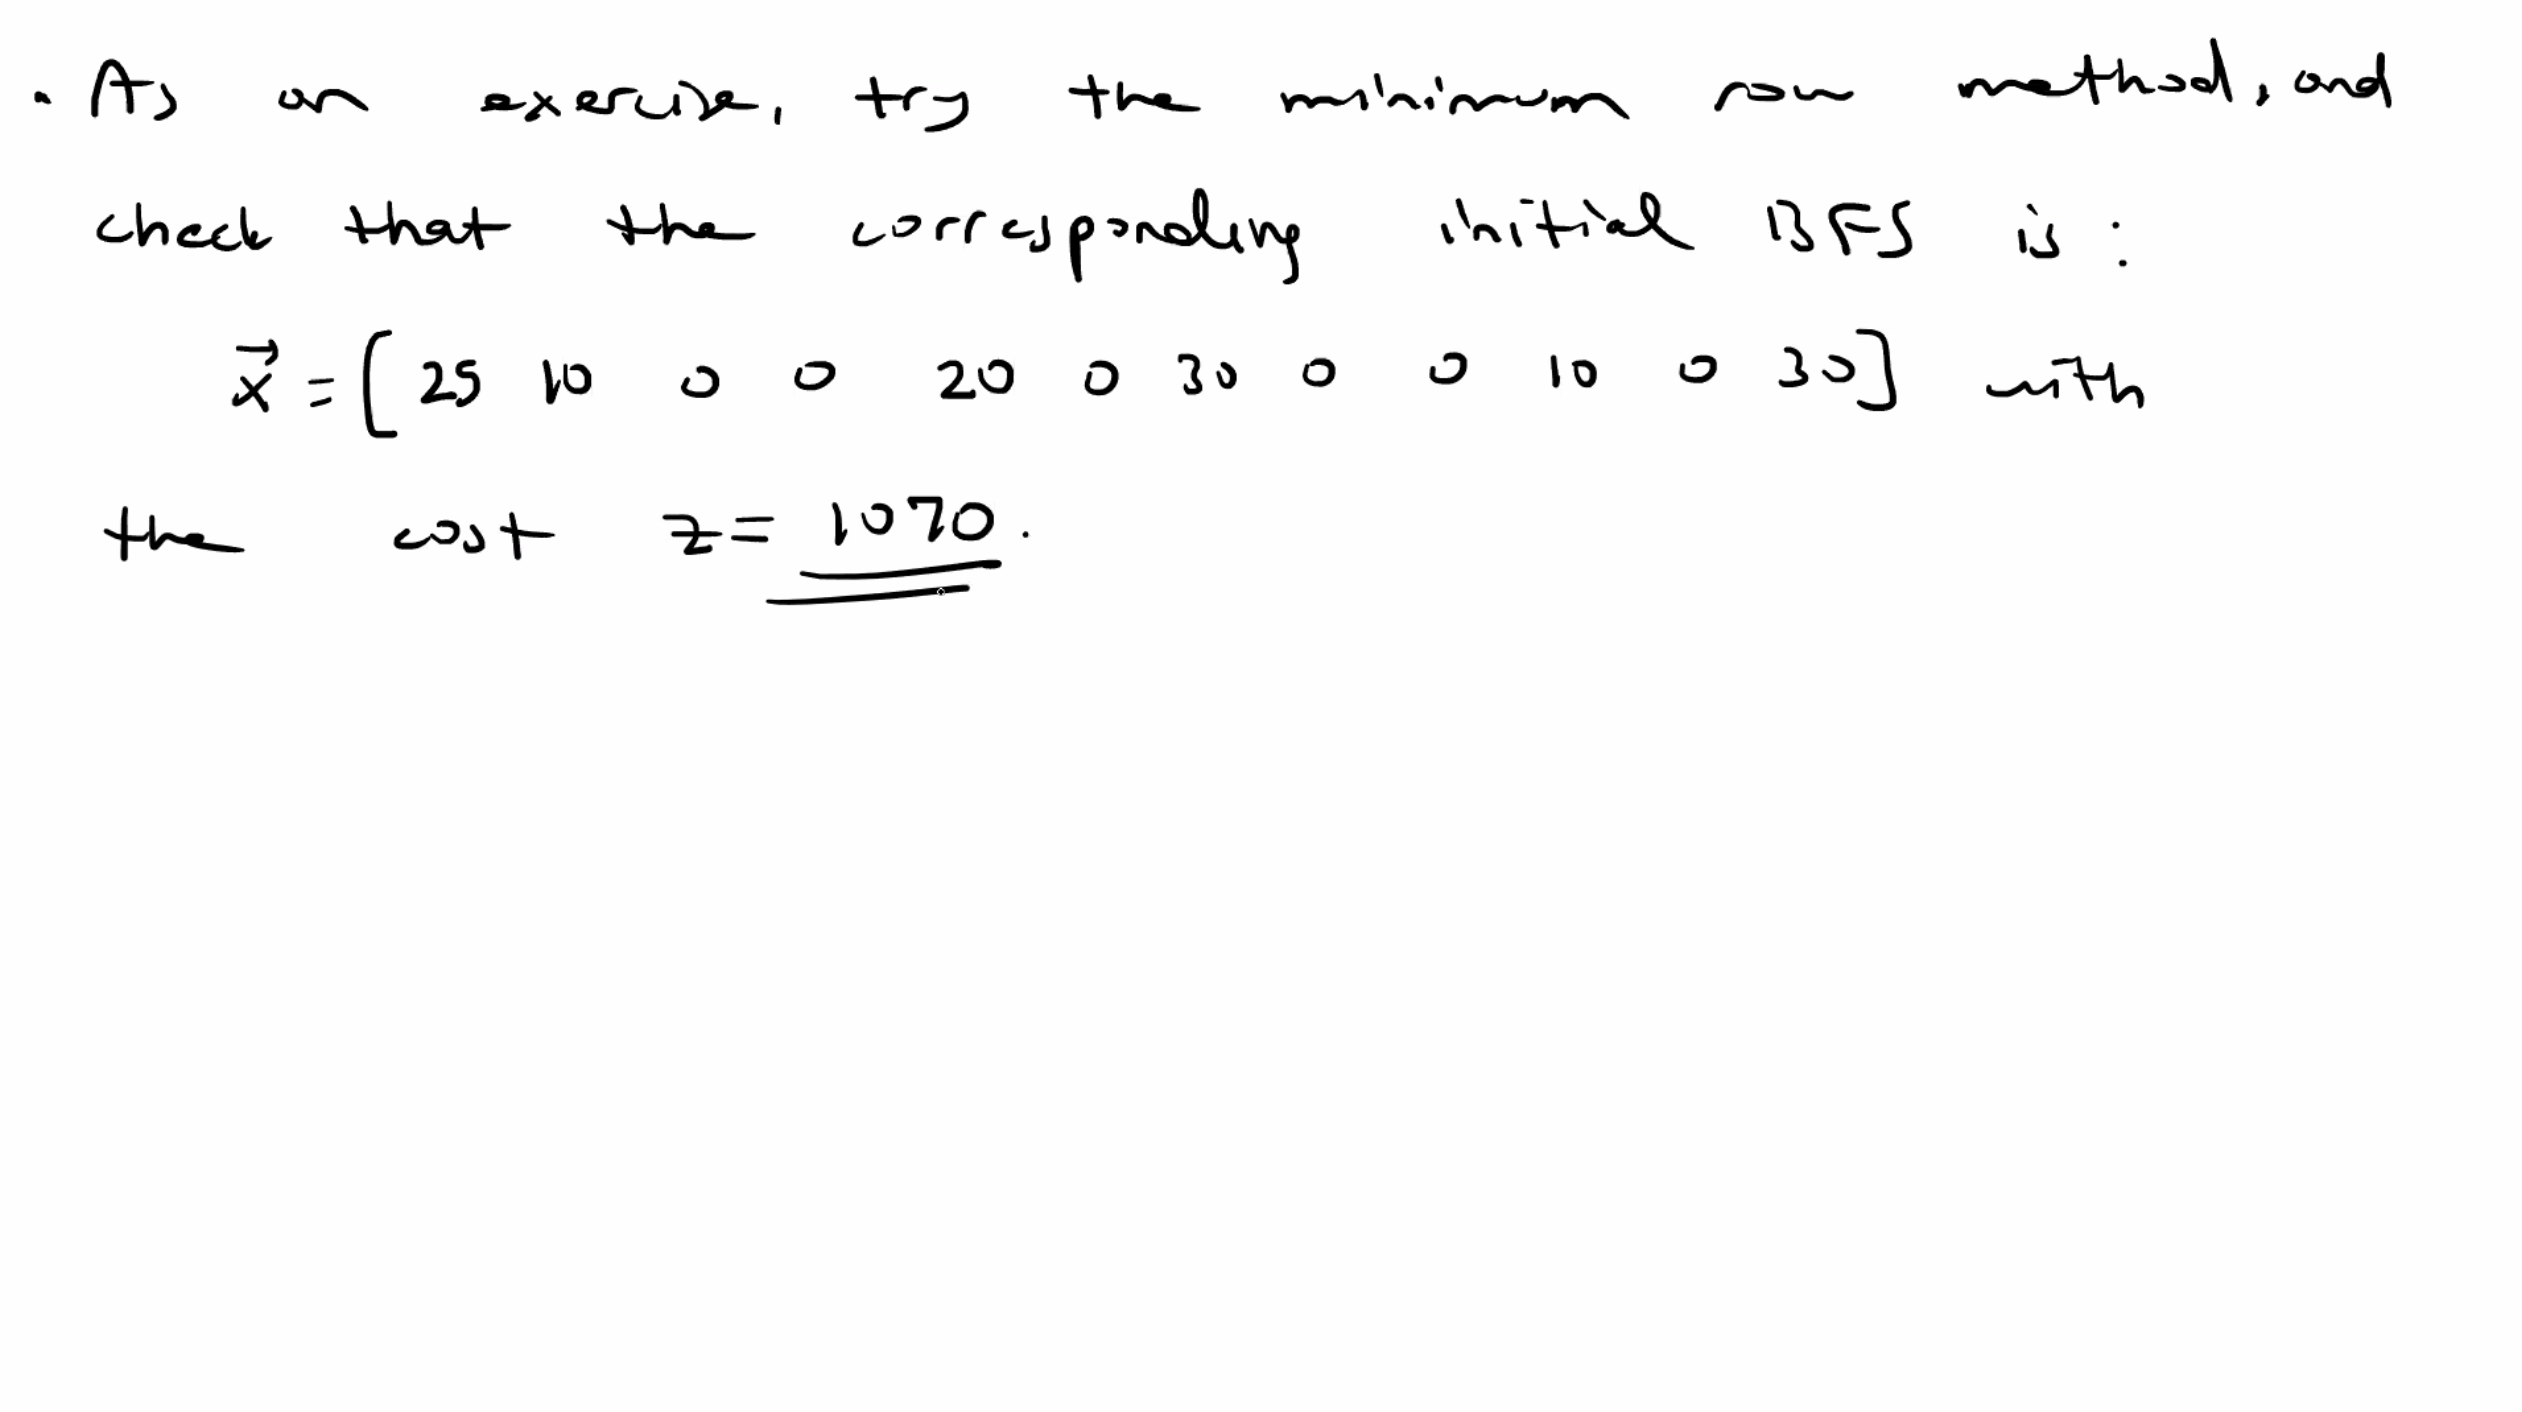 . As an exercise, try the minimum row method, and
check that the corresponding initial BFS is :
x⃗ = [ 25 10 0 0 20 0 30 0 0 10 0 30 ] with
the cost z = 1070 .